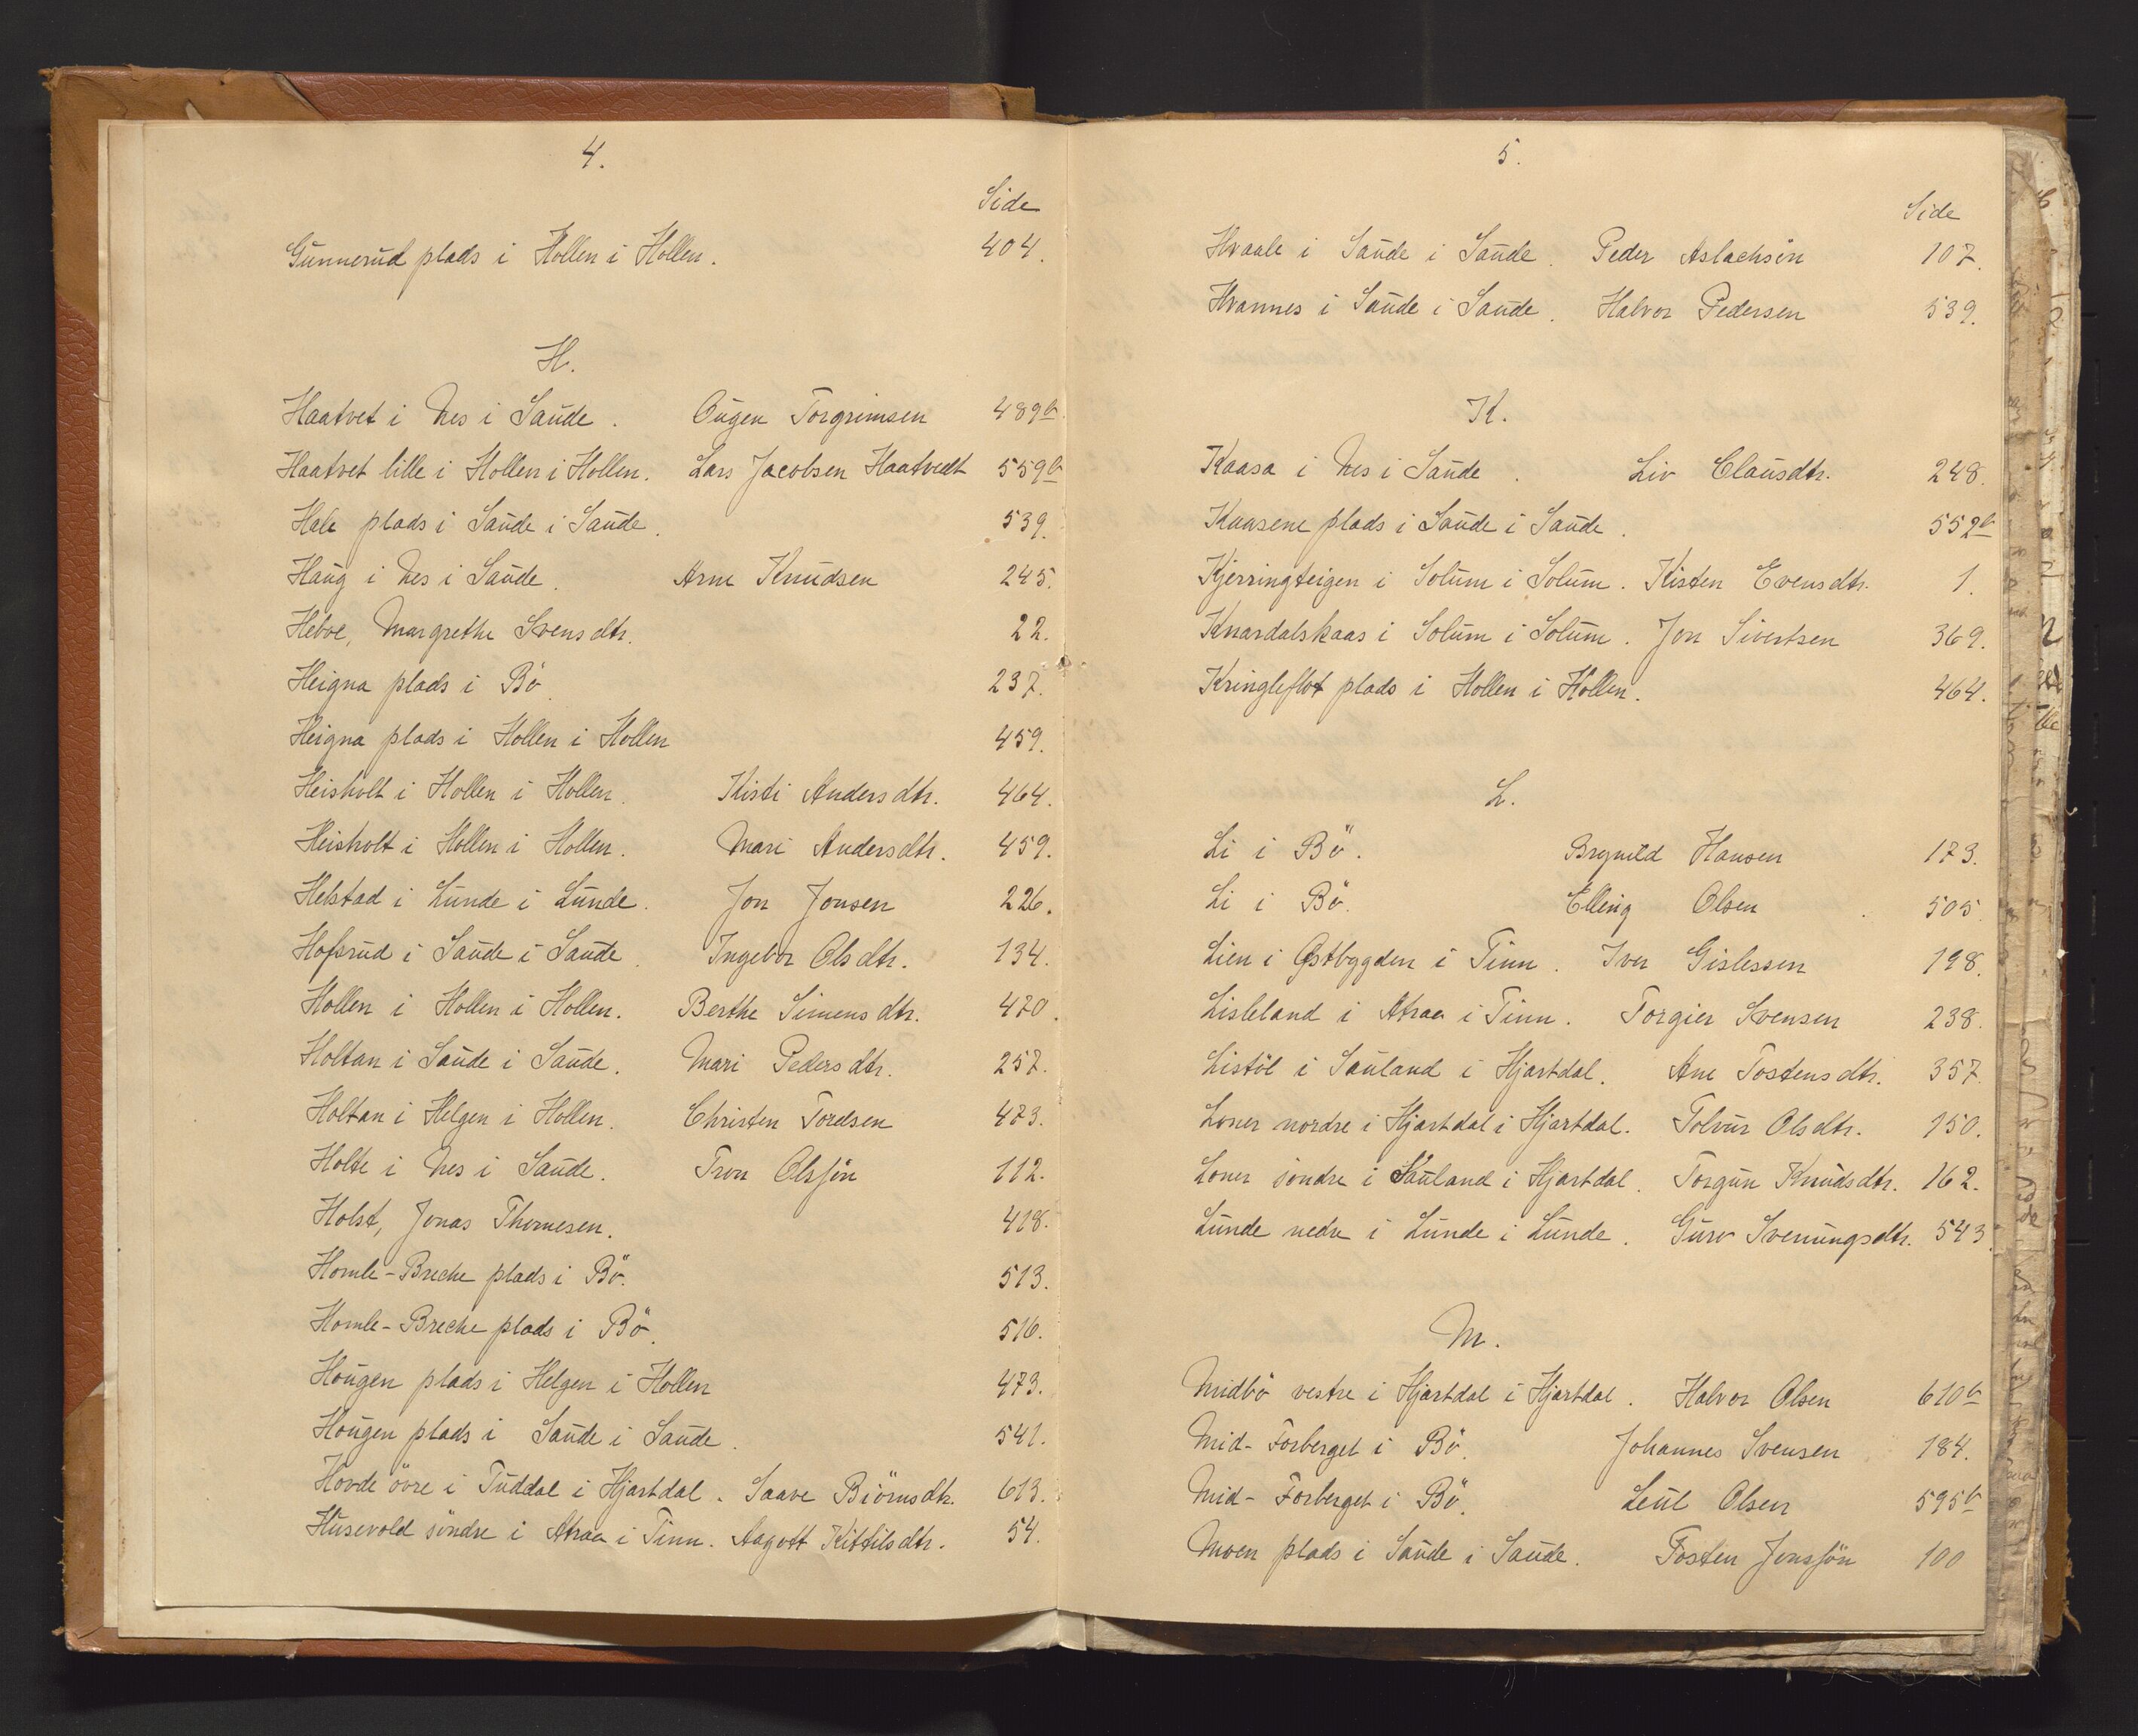 4.
Side
Gunnerud plads i Hollen i Hollen. 404.
H.
Haatvet i Nes i Saude. Ougen Torgrimsen 489b.
Haatvet lille i Hollen i Hollen. Lars Jacobsen Haatvedt 559b
Hale plads i Saude i Saude. 539.
Haug i Nes i Saude. Arne Knudsen 245.
Heboe, Margrethe Svensdtr. 22.
Heigna plads i Bö. 237.
Heigna plads i Hollen i Hollen 459.
Heisholt i Hollen i Hollen. Kisti Andersdtr. 464.
Heisholt i Hollen i Hollen. Mari Andersdtr. 459.
Helstad i Lunde i Lunde. Jon Jonsen 226.
Hofsrud i Saude i Saude. Ingebor Olsdtr. 134.
Hollen i Hollen i Hollen. Berthe Simensdtr. 470.
Holtan i Saude i Saude. Mari Pedersdtr. 257.
Holtan i Helgen i Hollen. Christen Tordsen 473.
Holte i Nes i Saude. Tron Olsjön 112.
Holst, Jonas Thomesen. 418.
Homle-Breche plads i Bö. 513.
Homle-Breche plads i Bö. 516.
Hougen plads i Helgen i Hollen 473.
Hougen plads i Saude i Saude. 541.
Hovde övre i Tuddal i Hjartdal. Saave Biörnsdtr. 613.
Husevold söndre i Atraa i Tinn. Aagott Kittilsdtr. 54.
5.
Side
Hvaale i Saude i Saude. Peder Aslachsön 107.
Hvannes i Saude i Saude. Halvor Pedersen 539.
K.
Kaasa i Nes i Saude. Liv Clausdtr. 248.
Kaasene plads i Saude i Saude. 552b
Kjerringteigen i Solum i Solum. Kisten Evensdtr. 1.
Knardalskaas i Solum i Solum. Jon Sivertsen 369.
Kringleflot plads i Hollen i Hollen. 464.
L.
Li i Bö. Brynild Hansen 173.
Li i Bö. Elling Olsen 505.
Lien i Østbygden i Tinn. Iver Gislessen 198.
Lisleland i Atraa i Tinn. Torgier Svensen 238.
Listöl i Sauland i Hjartdal. Ane Tostensdtr. 357.
Loner nordre i Hjartdal i Hjartdal. Tolvur Olsdtr. 150.
Loner söndre i Sauland i Hjartdal. Torgun Knudsdtr. 162.
Lunde nedre i Lunde i Lunde. Guro Svenungsdtr. 543.
M.
Midbö vestre i Hjartdal i Hjartdal. Halvor Olsen 610b
Mid-Forberget i Bö. Johannes Svensen 184.
Mid-Forberget i Bö. Leul Olsen 595b
Moen plads i Saude i Saude. Tosten Jonsjön 100